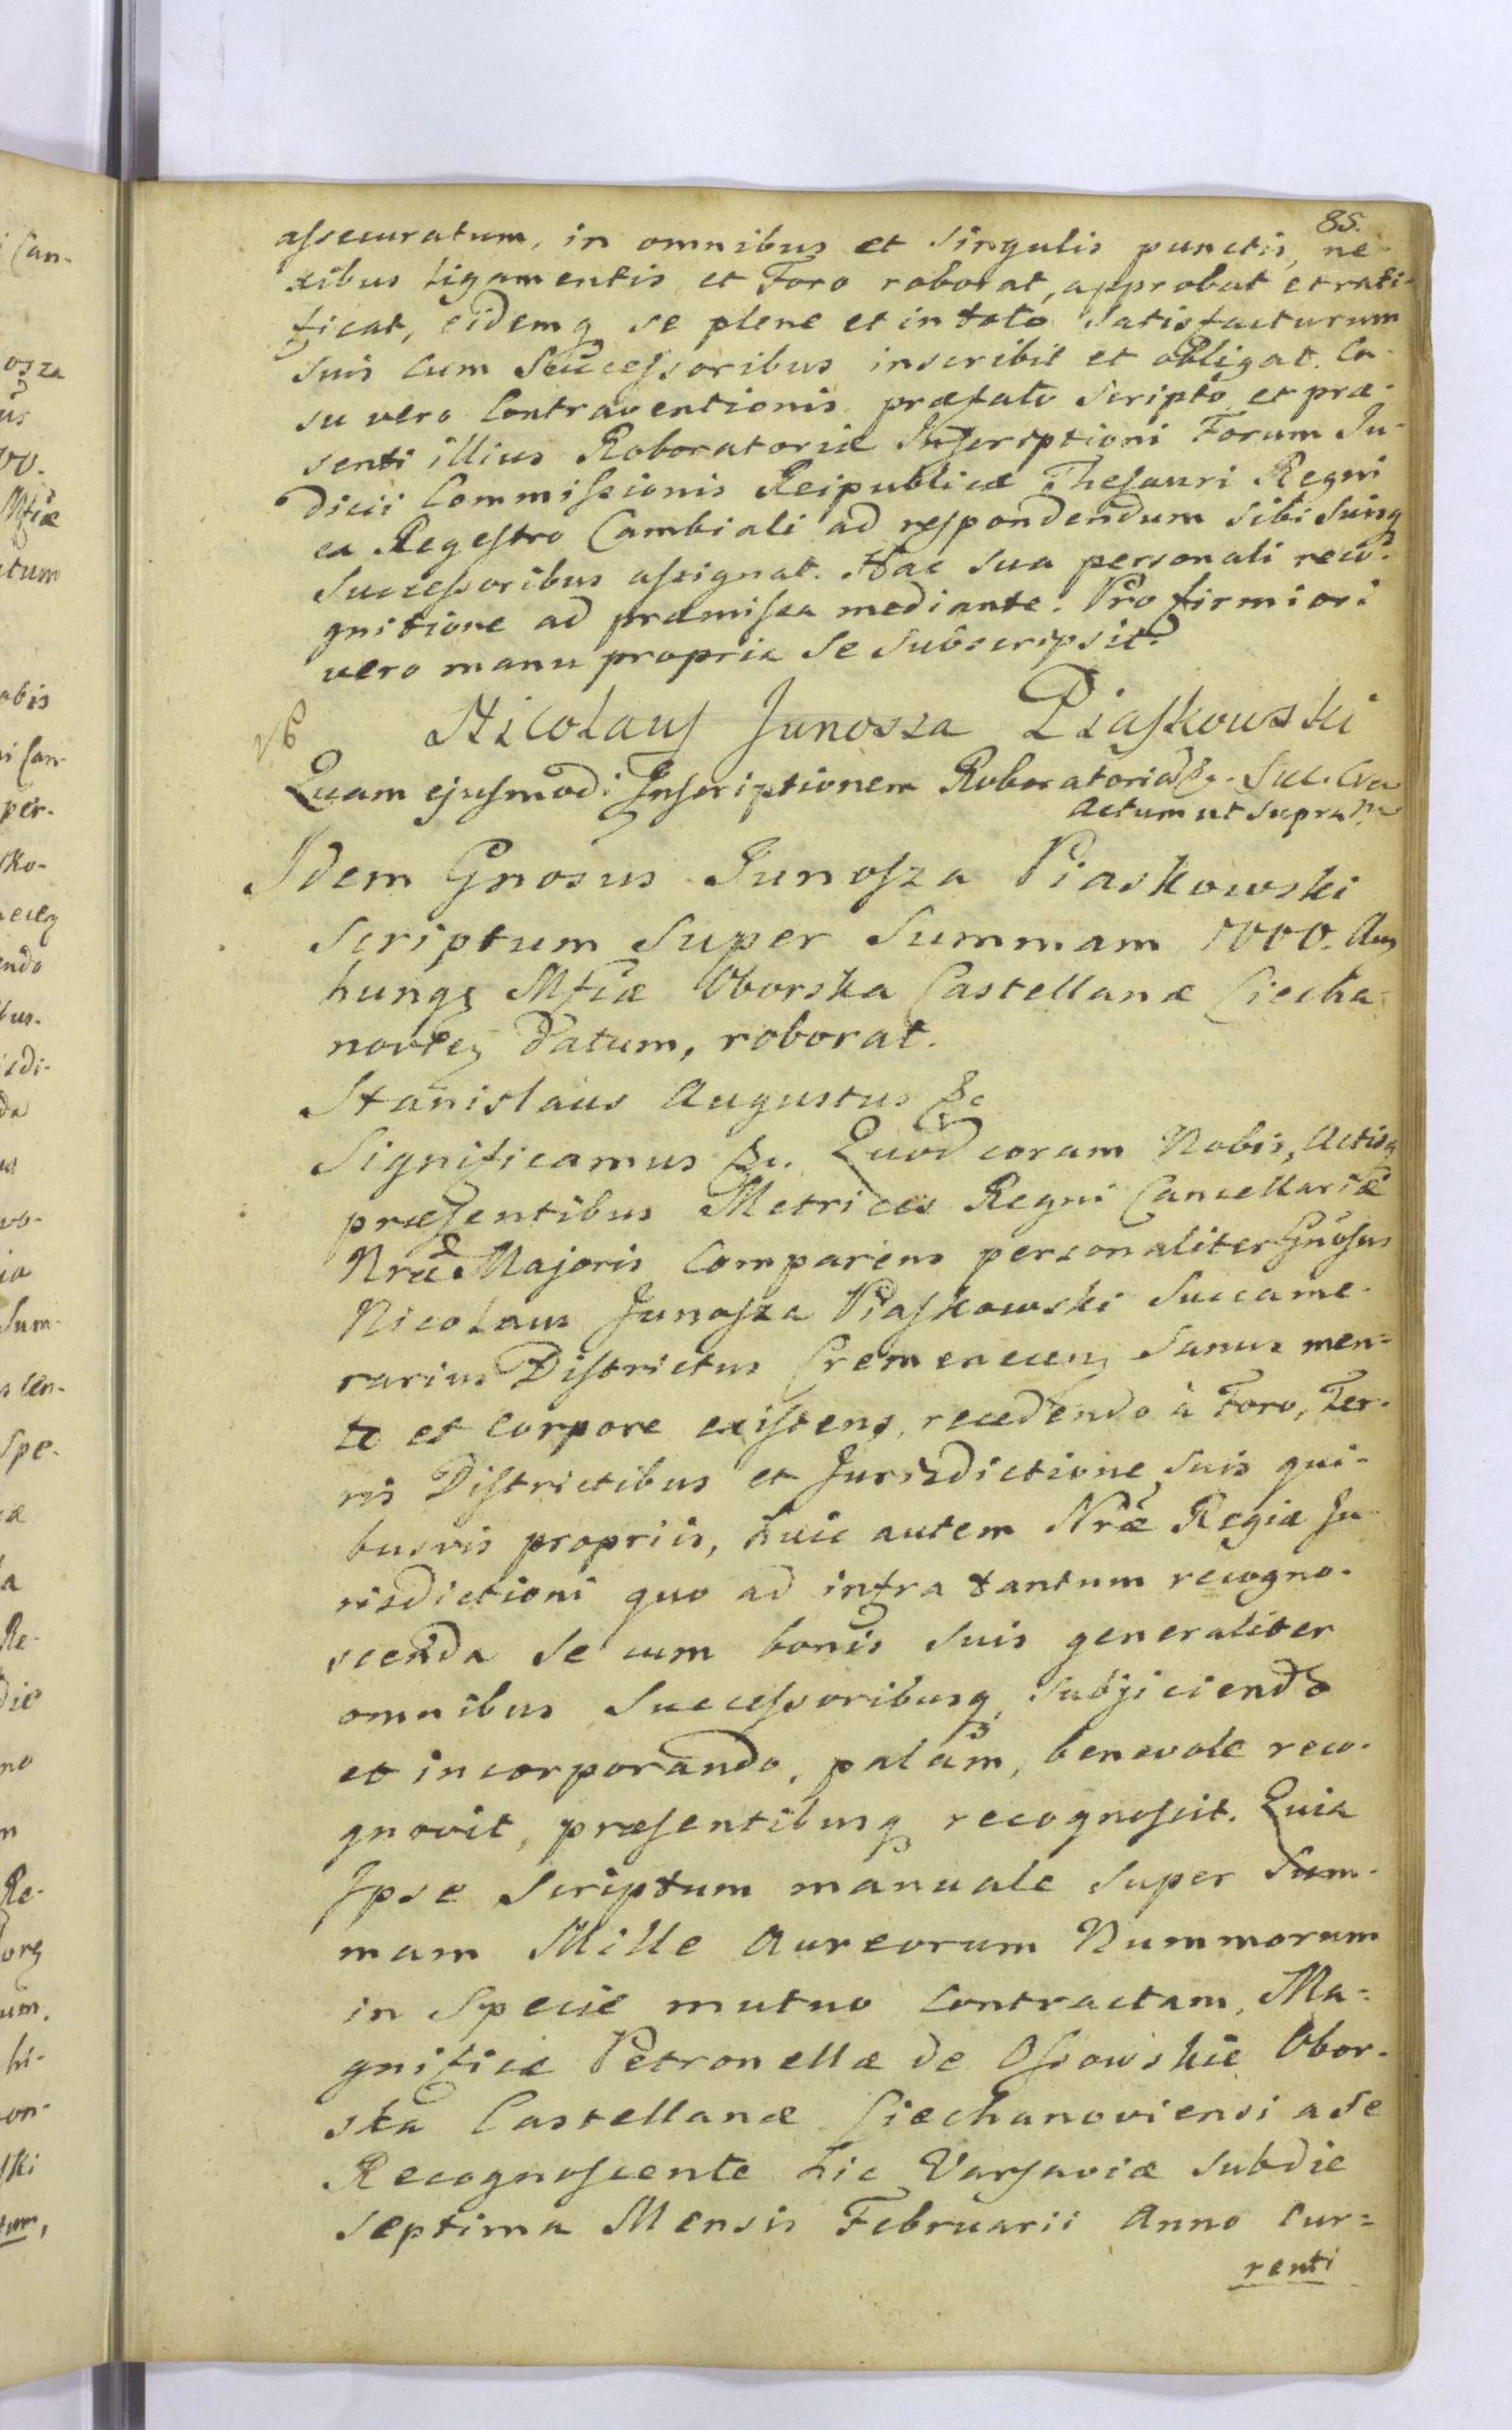 85.
assecuratum, in omnibus et singulis punctis, ne-
xibus ligamentis et Foro roborat, approbat et rati-
ficat, eidemq se plene et in toto satisfacturum
suis cum Successoribus inscribit et obligat. Ca-
su vero Contraventionis præfato scripto et præ-
senti illius Roboratoriæ Inscriptioni Forum Ju-
dicii Commissionis Reipublicæ Thesauri Regni
ex Regestro Cambiali ad respondendum sibi suisq
Successoribus assignat. Hac sua personali reco-
gnitione ad præmissa mediante. Pro firmiori
vero manu propria se subscripsit.
Nicolaus Junosza Piaskowski
Quam ejusmodi Inscriptionem Roboratoria &.
Actum ut supra
Idem Gnosus Junosza Piaskowski
scriptum super Summam 1000. Aur
hung Mfcæ Oborska Castellanæ Ciecha-
novien datum, roborat.
Stanislaus Augustus &c
Significamus &c. Quod coram Nobis, Actisq
præsentibus Metrices Regni Cancellariæ
Nræ Majoris Comparens personaliter Gnosus
Nicolaus Junosza Piaskowski Succame-
rarius Districtus Cremenecen, sanus men-
te et corpore existens, recedendo à Foro, Ter-
ris Districtibus et Jurisdictione suis qui-
busvis propriis, huic autem Nræ Regiæ Ju-
risdictioni quo ad infra tantum recogno-
scenda se cum bonis suis generaliter
omnibus Successoribusq, subjiciendo
et incorporando, palam, benevole reco-
gnovit, præsentibusq recognoscit. Quia
Ipse scriptum manuale super Sum-
mam Mille Aureorum Nummorum
in Specie mutuo contractam, Ma-
gnificæ Petronellæ de Ossowskie Obor-
ska Castellanæ Ciechanoviensi a se
Recognoscente hic Varsaviæ sub die
septima Mensis Februarii Anno Cur-
renti